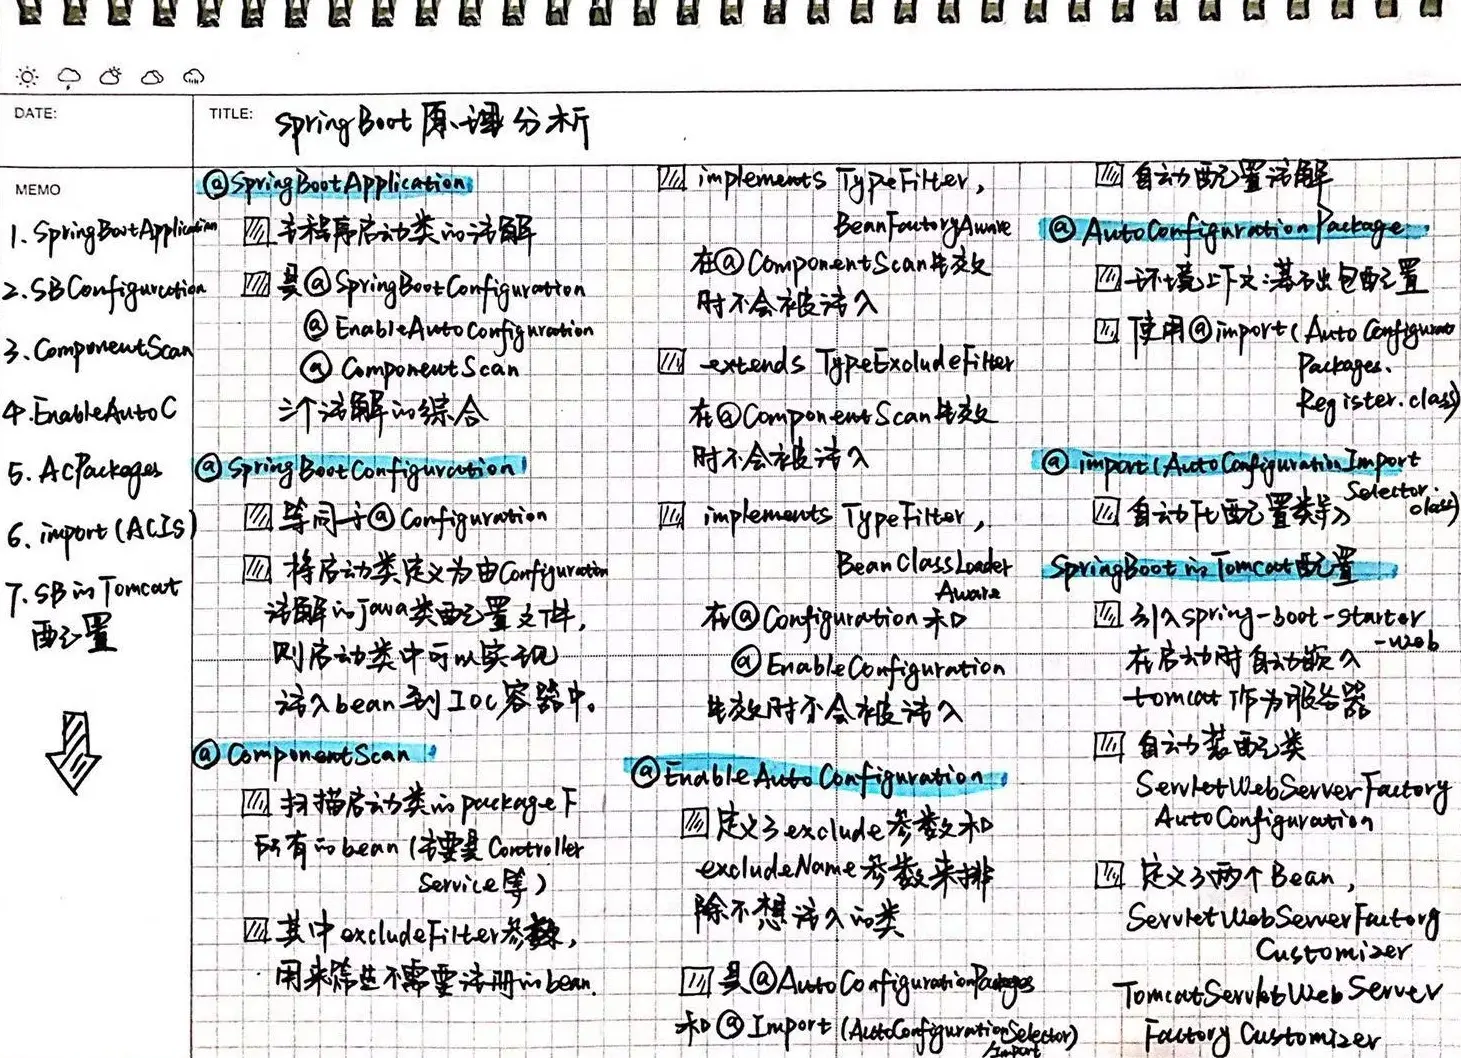 DATE:
TITLE: SpringBoot 原理分析
MEMO
1. SpringBootApplication
2. SBConfiguration
3. ComponentScan
4. EnableAutoC
5. ACPackages
6. import(ACIS)
7. SB的Tomcat
配置
@SpringBootApplication
主程序启动类的注解
是@SpringBootConfiguration
@EnableAutoConfiguration
@ComponentScan
三个注解的综合
@SpringBootConfiguration
等同于@Configuration
将启动类定义为由Configuration
注解的Java类配置文件,
则启动类中可以实现
注入bean到IOC容器中。
@ComponentScan
扫描启动类的package下
所有的bean(主要是Controller
Service等)
其中excludeFilter参数,
用来筛些不需要注册的bean.
implements TypeFilter,
BeanFactoryAware
在@ComponentScan生效
时不会被注入
extends TypeExcludeFilter
在@ComponentScan生效
时不会被注入
implements TypeFilter,
BeanClassLoader
Aware
在@Configuration和
@EnableConfiguration
生效时不会被注入
@EnableAutoConfiguration
定义了exclude参数和
excludeName参数来排
除不想注入的类
是@AutoConfigurationPackages
和@Import(AutoConfigurationSelector)
Import
自动配置注解
@AutoConfigurationPackage
环境上下文:落不出包配置
使用@import(AutoConfiguratio
Packages.
Register.class)
@import(AutoConfigurationImport
Selector.
class)
自动化配置类导入
SpringBoot的Tomcat配置
引入spring-boot-starter
-web
在启动时自动嵌入
tomcat作为服务器
自动装配类
ServletWebServerFactory
AutoConfiguration
定义了两个Bean,
ServletWebServerFactory
Customizer
TomcatServletWebServer
Factory Customizer